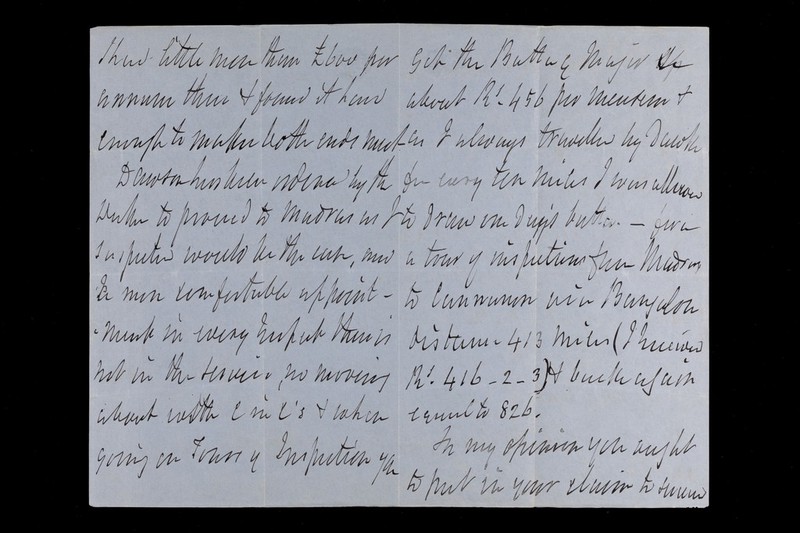 I had little more than £600 per
annum there & found it hard
enough to make both ends meet
Dawson has been ordered by the
Duke to proceed to Madras as I
suspected would be the case, and
a more comfortable appoint-
-ment in every respect there is
not in the service, no moving
about with C in C's & when
going on Tours of Inspection you
get the Batta of Major
about Rs. 456 per mensem &
as I always travelled by Dawk
for every ten miles I was allowed
to draw one day's batta. — for
a tour of inspections from Madras
to Cannanore via Bangalore
distance 413 miles (I received
Rs. 416-2-3) & back again
equal to 826.
In my opinion you ought
to put in your claim to